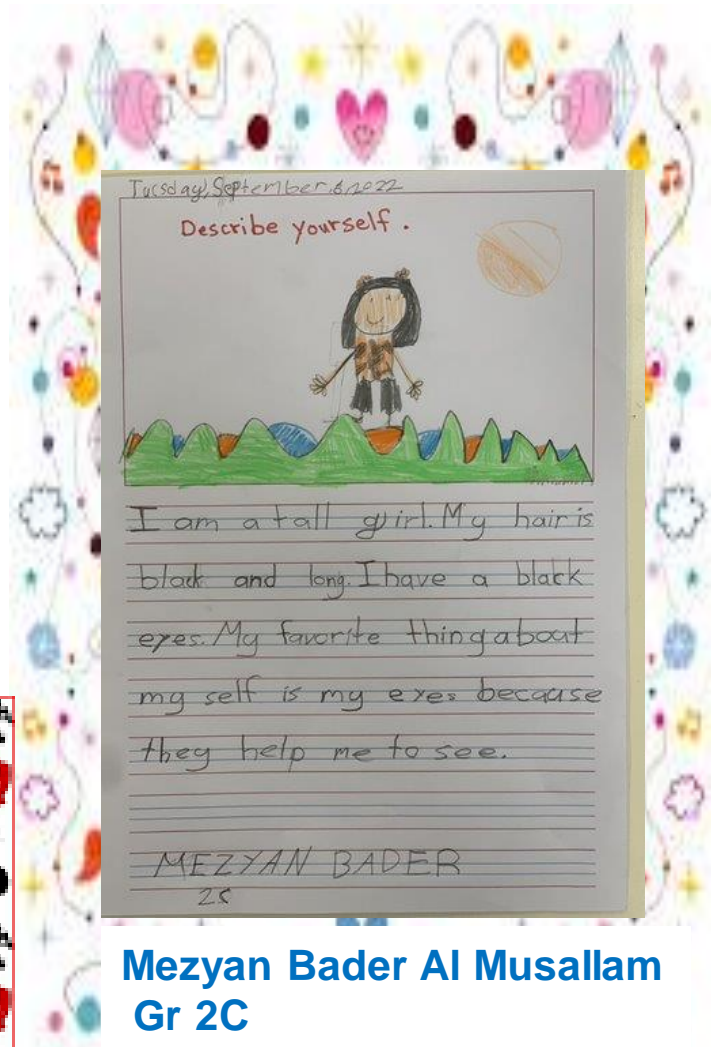 Tuesday, September 6, 2022
Describe yourself.
I am a tall girl. My hair is
black and long. I have a black
eyes. My favorite thing about
my self is my eyes because
they help me to see.
MEZYAN BADER
2C
Mezyan Bader Al Musallam
Gr 2C